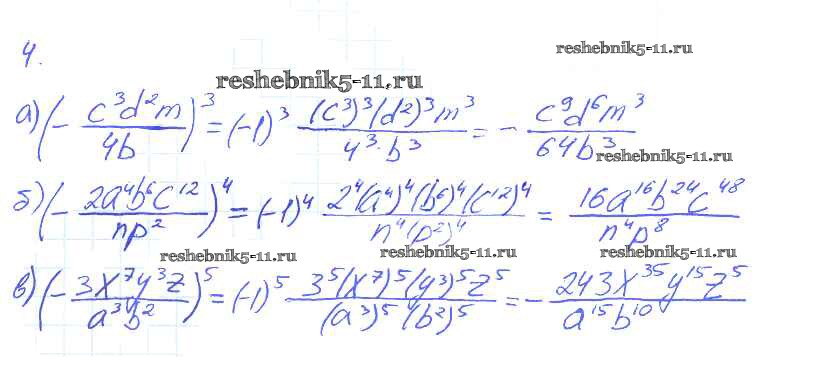 reshebnik5-11.ru
4.
reshebnik5-11.ru
а) (- c³d²m / 4b)³ = (-1)³ (c³)³(d²)³m³ / 4³·b³ = - c⁹d⁶m³ / 64b³
reshebnik5-11.ru
б) (- 2a⁴b⁶c¹² / np²)⁴ = (-1)⁴ 2⁴(a⁴)⁴(b⁶)⁴(c¹²)⁴ / n⁴(p²)⁴ = 16a¹⁶b²⁴c⁴⁸ / n⁴p⁸
reshebnik5-11.ru reshebnik5-11.ru reshebnik5-11.ru
в) (- 3x⁷y³z / a³b²)⁵ = (-1)⁵ 3⁵(x⁷)⁵(y³)⁵z⁵ / (a³)⁵(b²)⁵ = - 243x³⁵y¹⁵z⁵ / a¹⁵b¹⁰